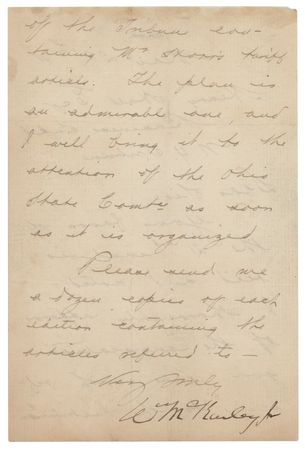 of the Tribune con-
taining Mr tariff
articles. The plan is
an admirable one, and
I will bring it to the
attention of the Ohio
State Comte as soon
as it is organized
Please send me
a dozen copies of each
edition containing the
articles referred to —
Very truly
Wm McKinley Jr